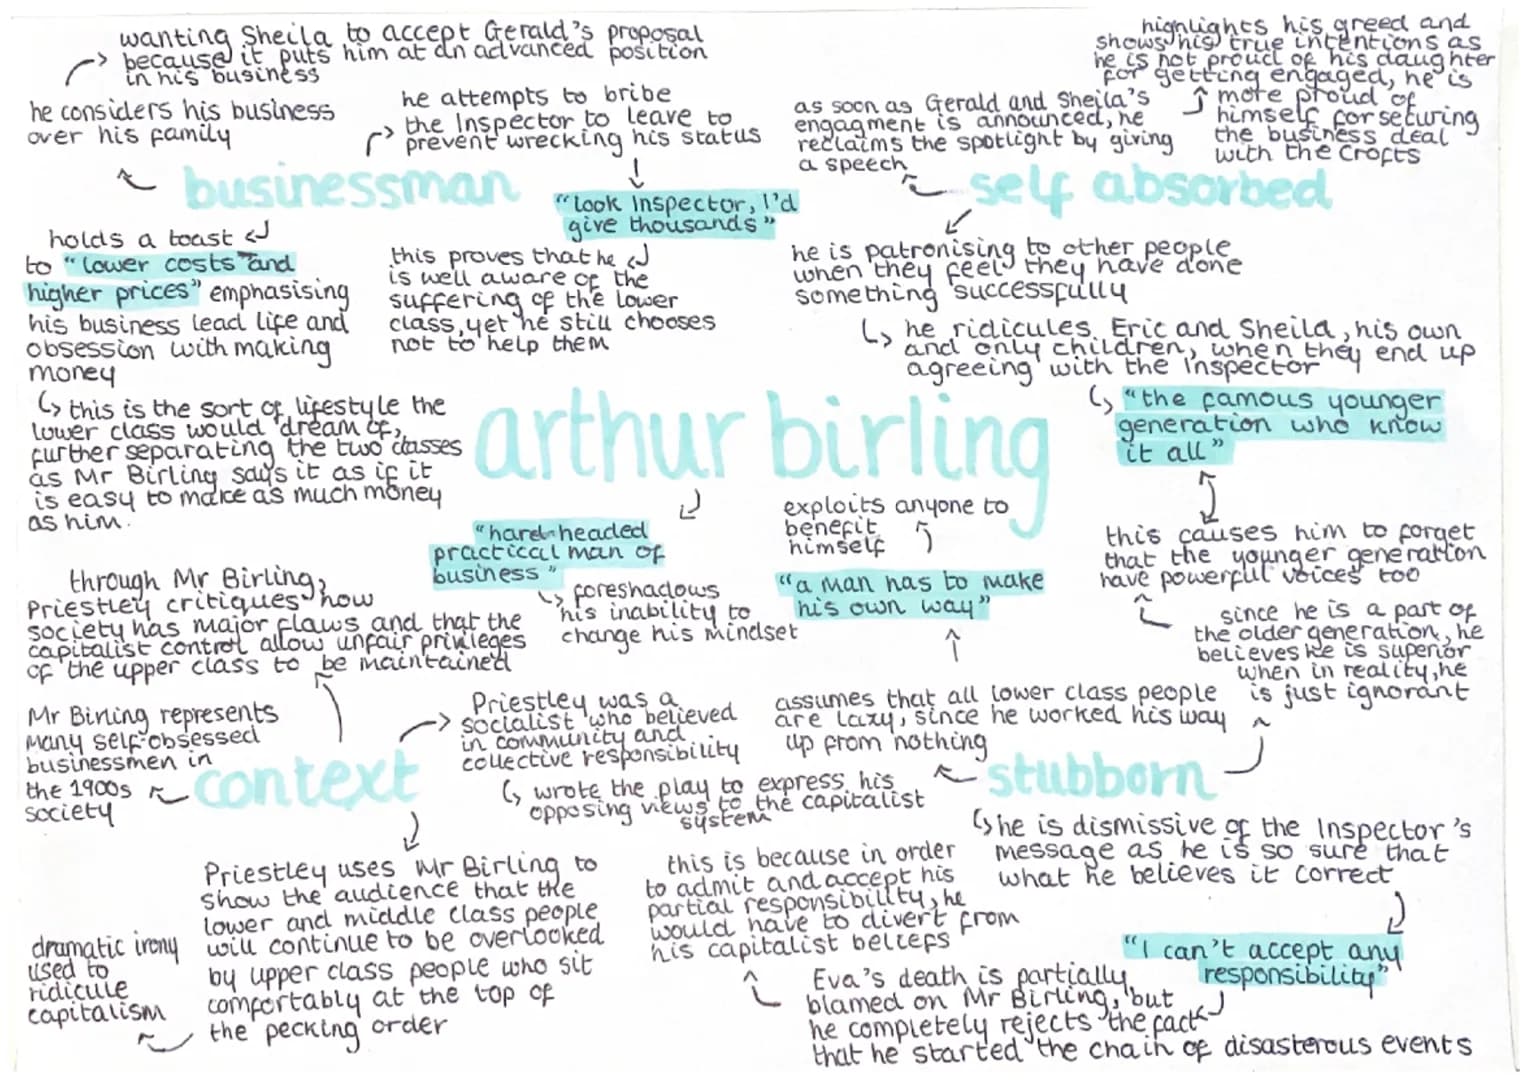 wanting Sheila to accept Gerald's proposal
because it puts him at an advanced position
in his business
he considers his business
over his family
businessman
he attempts to bribe
the Inspector to leave to
prevent wrecking his status
"look Inspector, I'd
give thousands"
this proves that he
is well aware of the
suffering of the lower
class, yet he still chooses
not to help them
holds a toast
to "lower costs and
higher prices" emphasising
his business lead life and
obsession with making
money
this is the sort of lifestyle the
lower class would dream of,
further separating the two classes
as Mr Birling says it as if it
is easy to make as much money
as him.
highlights his greed and
shows his true intentions as
he is not proud of his daughter
for getting engaged, he is
more proud of
himself for securing
the business deal
with the Crofts
as soon as Gerald and Sheila's
engagment is announced, he
reclaims the spotlight by giving
a speech
self absorbed
he is patronising to other people
when they feel they have done
something successfully
he ridicules Eric and Sheila, his own
and only children, when they end up
agreeing with the Inspector
"the famous younger
generation who know
it all"
this causes him to forget
that the younger generation
have powerful voices too
since he is a part of
the older generation, he
believes he is superior
when in reality, he
is just ignorant
arthur birling
"hard-headed
practical man of
business"
foreshadows
his inability to
change his mindset
exploits anyone to
benefit
himself
"a man has to make
his own way"
assumes that all lower class people
are lazy, since he worked his way
up from nothing
stubborn
he is dismissive of the Inspector's
message as he is so sure that
what he believes it correct
"I can't accept any
responsibility"
Eva's death is partially
blamed on Mr Birling, but
he completely rejects the fact
that he started the chain of disasterous events
this is because in order
to admit and accept his
partial responsibility, he
would have to divert from
his capitalist beliefs
through Mr Birling,
Priestley critiques how
society has major flaws and that the
capitalist control allow unfair privileges
of the upper class to be maintained
Mr Birling represents
many self-obsessed
businessmen in
the 1900s
society
context
Priestley was a
socialist who believed
in community and
collective responsibility
wrote the play to express his
opposing views to the capitalist
system
Priestley uses Mr Birling to
show the audience that the
lower and middle class people
will continue to be overlooked
by upper class people who sit
comfortably at the top of
the pecking order
dramatic irony
used to
ridicule
capitalism